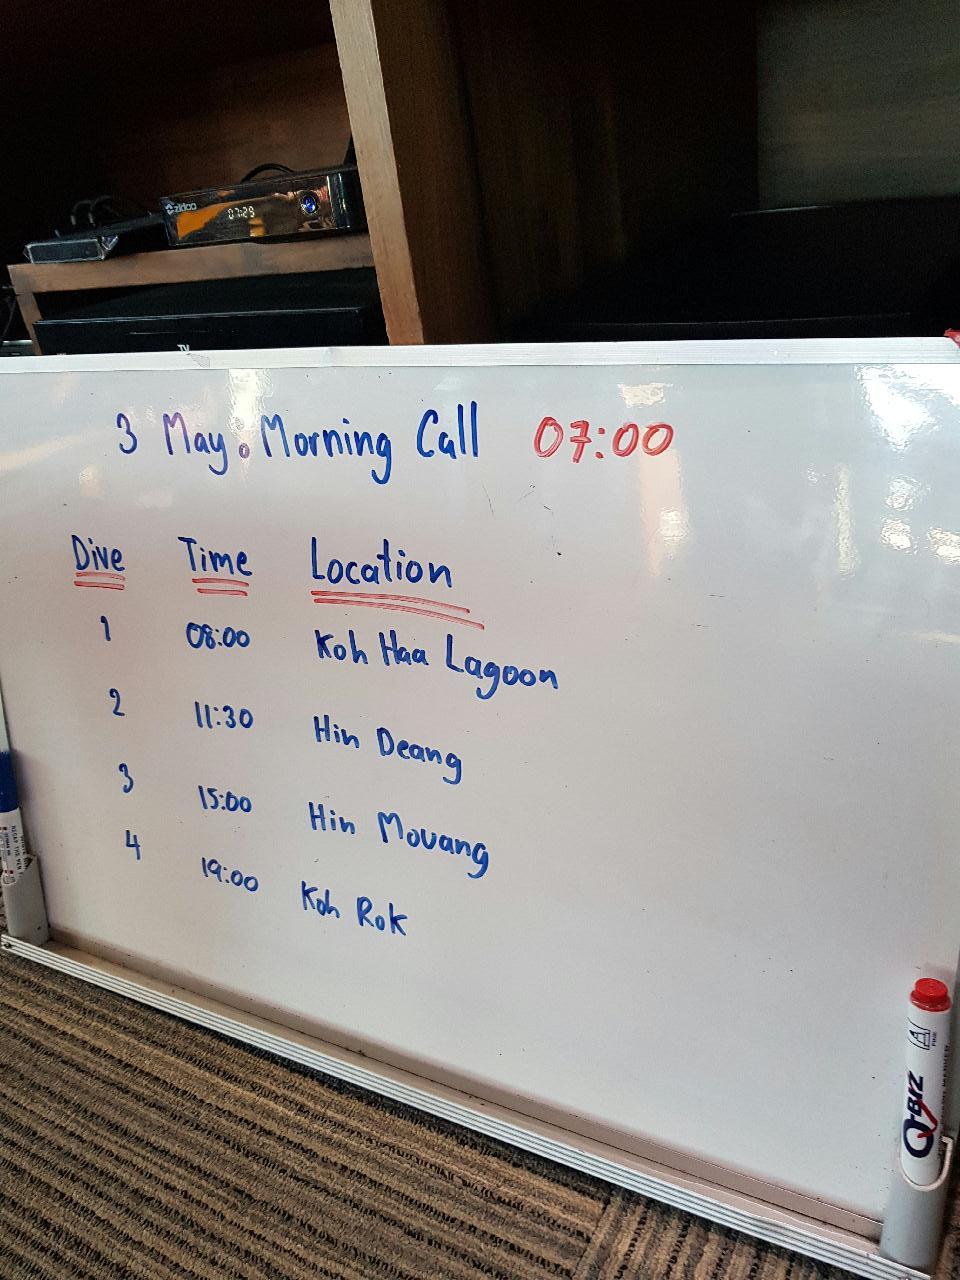 zidoo
07:29
TV
3 May: Morning Call 07:00
Dive Time Location
1 08:00 Koh Haa Lagoon
2 11:30 Hin Deang
3 15:00 Hin Mouang
4 19:00 Koh Rok
Q-BIZ